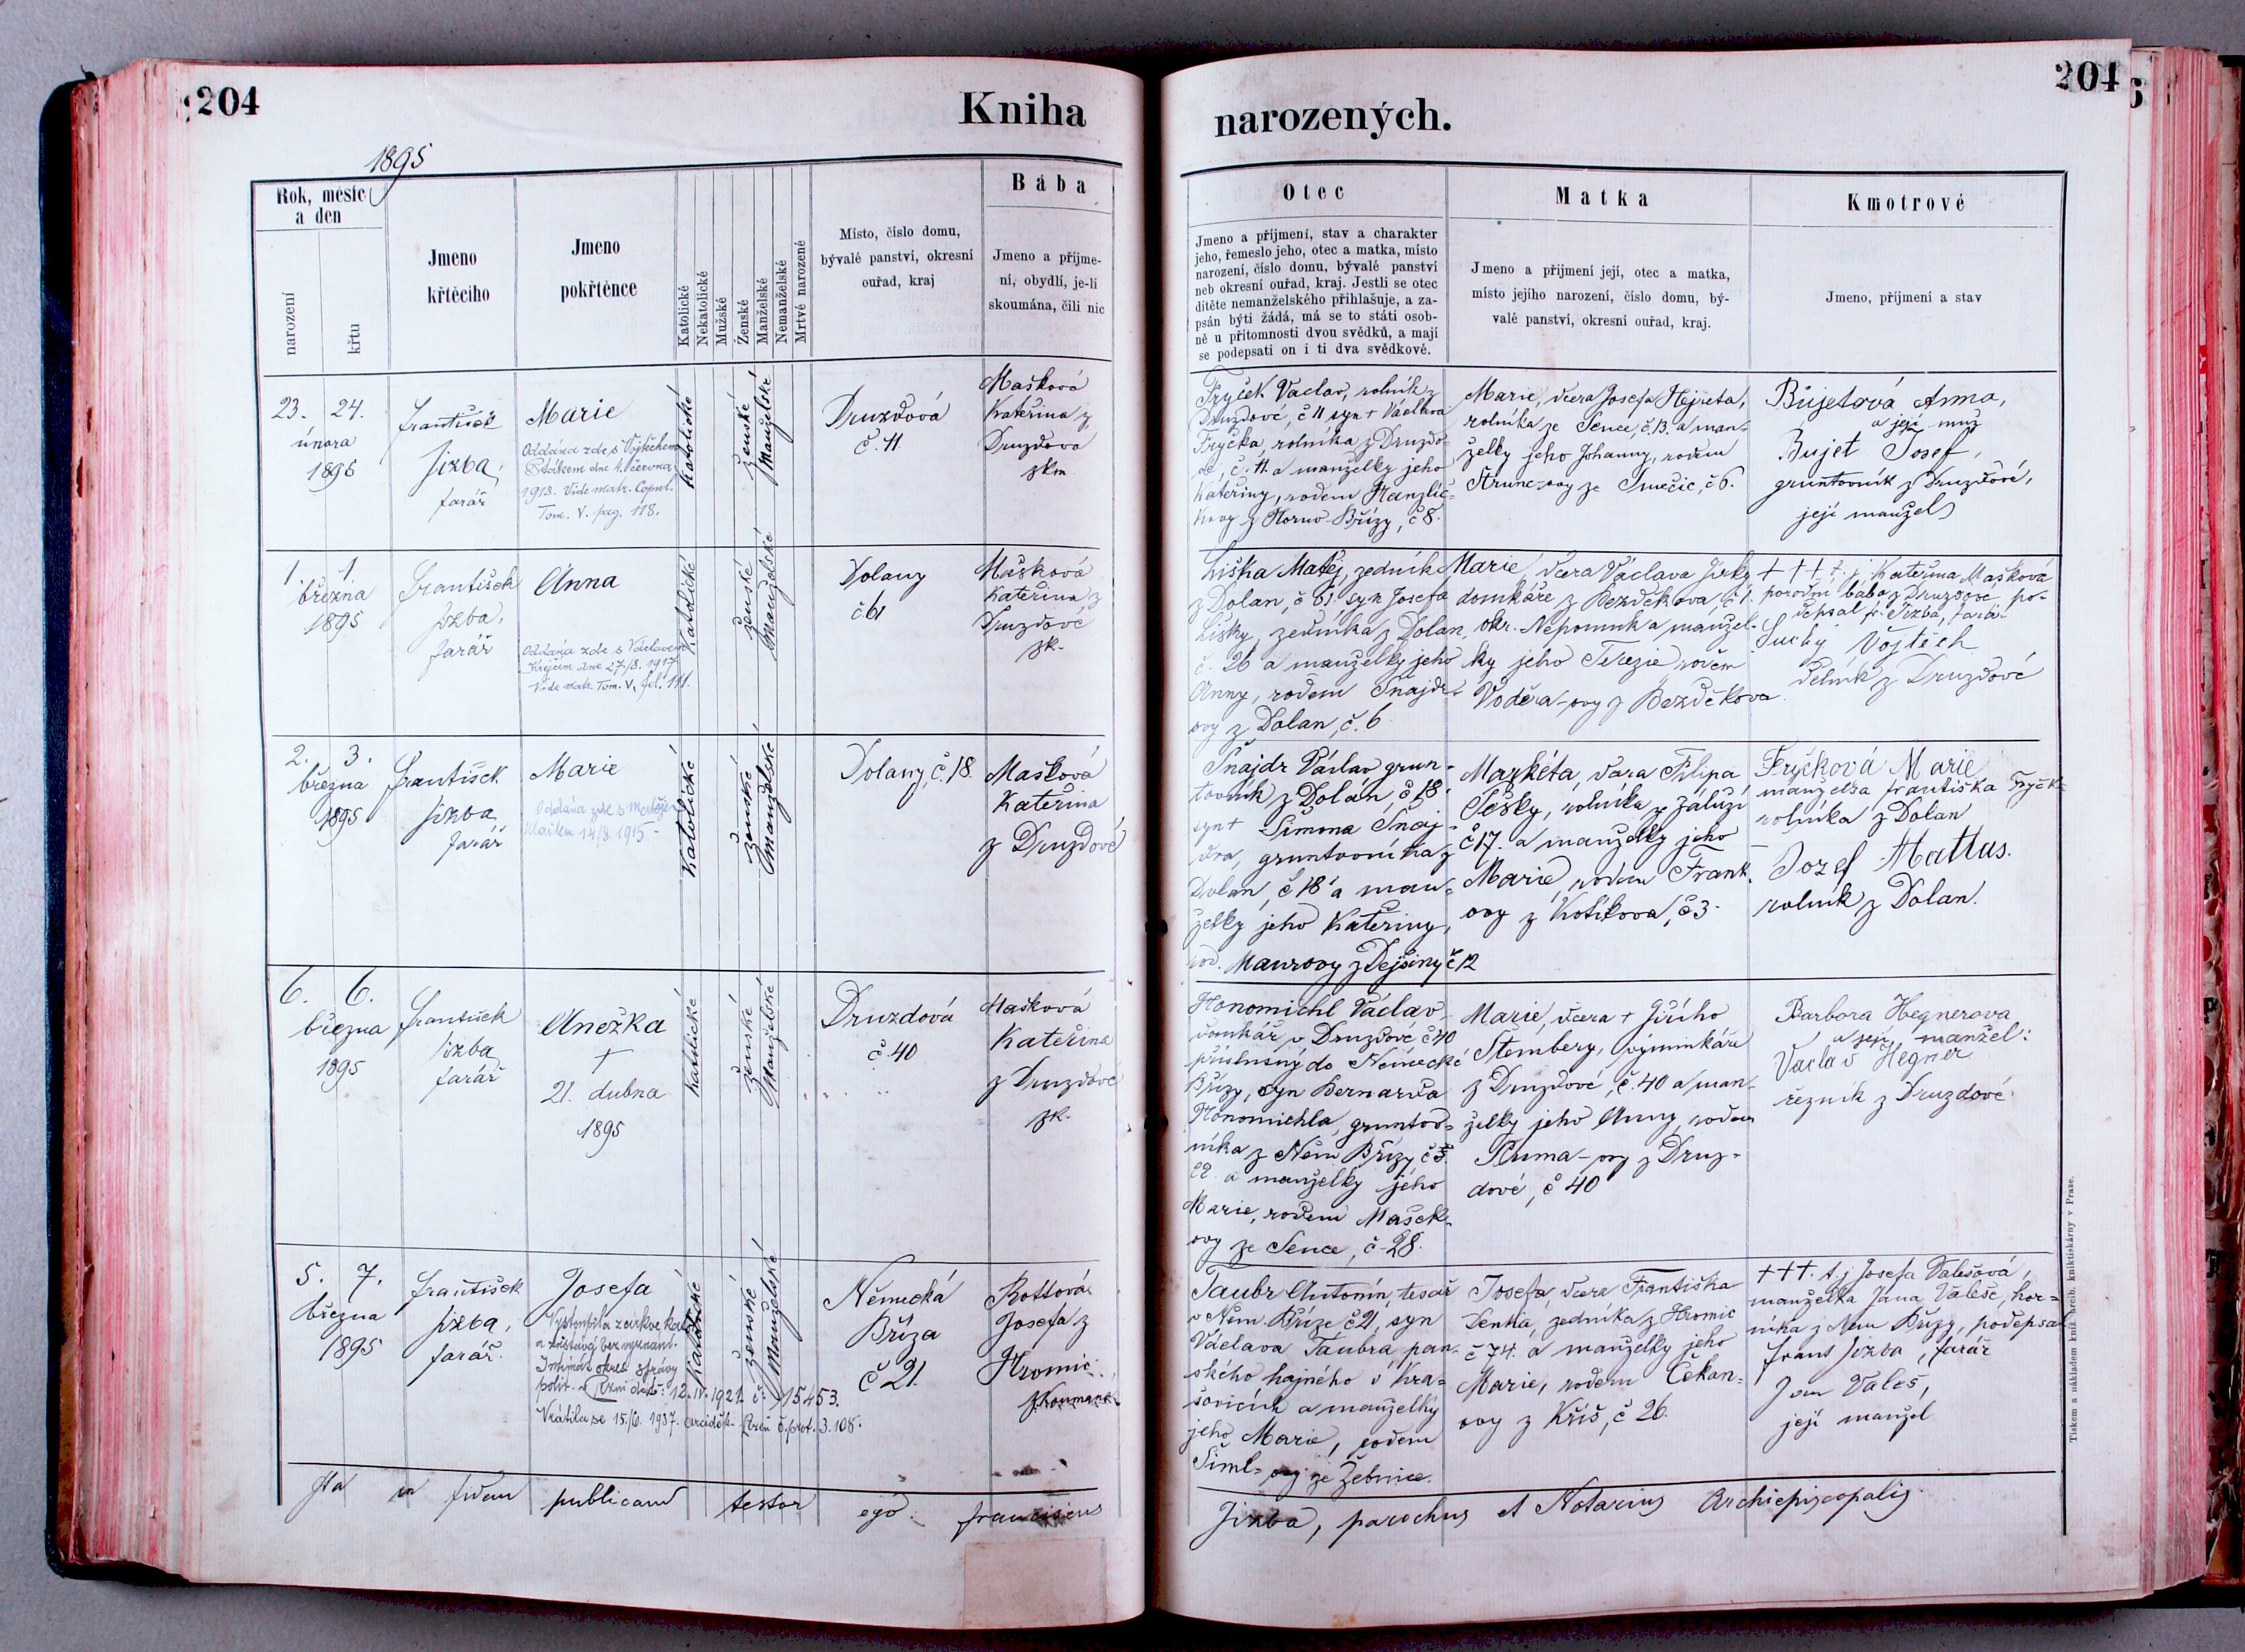 204
Kniha
narozených.
204
1895
Rok, měsíc
a den
narození
křtu
Jmeno
křtěcího
Jmeno
pokřtěnce
Katolické
Nekatolické
Mužské
Ženské
Manželské
Nemanželské
Mrtvě narozené
Místo, číslo domu,
bývalé panství, okresní
ouřad, kraj
Bába
Jmeno a příjme-
ní, obydlí, je-li
skoumána, čili nic
Otec
Jmeno a příjmení, stav a charakter
jeho, řemeslo jeho, otec a matka, místo
narození, číslo domu, bývalé panství
neb okresní ouřad, kraj. Jestli se otec
dítěte nemanželského přihlašuje, a za-
psán býti žádá, má se to státi osob-
ně u přítomnosti dvou svědků, a mají
se podepsati on i ti dva svědkové.
Matka
Jmeno a přijmení její, otec a matka,
místo jejího narození, číslo domu, bý-
valé panství, okresní ouřad, kraj.
Kmotrové
Jmeno, příjmení a stav
23. 24.
února
1895
František
Jizba,
farář
Marie
Oddána zde s Vojtěchem
Ptákem dne 1. června
1918. Vide matr. Copul.
Tom. V. pag. 118.
Katolické
ženské
Manželské
Druzdová
č. 11
Mašková
Kateřina z
Druzdova
zkm
Fryček Vaclav, rolník z
Druzdové, č 11, syn + Václava
Fryčka, rolníka z Druzdo-
vé, č. 11. a manželky jeho
Kateřiny, rodem Hanzlíč-
kovy z Horno Břízy, č 8.
Marie, dcera Josefa Hejreta,
rolníka ze Sence, č. 13. a man-
želky jeho Johanny, rodem
Štrunc-ovy ze Smečic, č 6.
Bujetová Anna,
a její muž
Bujet Josef,
gruntovník z Druzdové,
její manžel
1. 1.
března
1895
František
Jizba,
farář
Anna
Oddána zde s Václavem
Krejčím dne 27/8. 1917
Vide matr. Tom. V, fol. 111.
Katolické
ženské
Manželské
Dolany
č 61
Mašková
Kateřina z
Druzdové
zk.
Liška Matěj, zedník
z Dolan, č 61. syn Josefa
Lišky, zedníka z Dolan,
č. 26 a manželky jeho
Anny, rodem Šnajdr-
ovy z Dolan, č. 6
Marie, dcera Václava Jirky
domkáře z Bezděkova, č 1.
okr. Nepomuk a manžel-
ky jeho Terezie, rodem
Voděra-ovy z Bezděkova
+ + + t. j. Kateřina Mašková
porodní bába z Druzdové po-
depsal fr. Jizba, farář
Suchý Vojtěch
dělník z Druzdové
2. 3.
března
1895
František
Jizba
farář
Marie
Oddána zde s Matějem
14/8. 1915
Katolické
ženské
Manželské
Dolany, č. 18.
Mašková
Kateřina
z Druzdové
Šnajdr Václav grun-
tovník z Dolan, č 18,
syn + Šimona Šnaj-
dra, gruntovníka z
Dolan, č 18 a man-
želky jeho Kateřiny,
rod. Maurovy z Dejšiny č 12
Markéta, dcera Filipa
Tešky, rolníka z Záluží
č 17. a manželky jeho
Marie, rodem Frank-
ovy z Kotíkova, č 3.
Fryčková Marie
manželka Františka Fryčk
rolníka z Dolan
Jozef Mattus.
rolník z Dolan.
6. 6.
března
1895
František
Jizba
farář
Anežka
+
21. dubna
1895
Katolické
ženské
Manželské
Druzdová
č. 40
Mašková
Kateřina
z Druzdové
zk.
Honomichl Václav
domkář v Druzdové č 40
příslušný do Německé
Břízy, syn Bernarda
Honomichla, gruntov-
níka z Něm Břízy, č 3.
a manželky jeho
Marie, rodem Mašek-
ovy ze Sence, č 28.
Marie, dcera + Jiřího
Štembery, výminkáře
z Druzdové, č. 40 a man-
želky jeho Anny, rodem
-ovy z Druz-
dové, č 40
Barbora Hegnerova
a její manžel:
Vaclav Hegner
řezník z Druzdové.
5. 7.
března
1895
František
Jizba,
farář.
Josefa
Vystoupila z církve kat.
a zůstává bez vyznání.
Intimát okres. správy
polit. v Plzni dtto: 12. IV. 1921. č. 15453.
Vrátila se 15./6. 1937. arciděk. Plzeň č. prot. 3.108.
Katolické
ženské
Manželské
Německá
Bříza
č 21.
Rottová
Josefa z
Hromic.
zkoumaná
Taubr Antonín, tesař
v Něm. Bříze č 21, syn
Václava Taubra, pan-
ského hajného v Kra-
šovicích a manželky
jeho Marie, rodem
Šiml-ovy ze Žebnice.
Josefa, dcera Františka
Lenka, zedníka z Hromic
č 74. a manželky jeho
Marie, rodem Čekan-
ovy z Kříš, č 26.
+++. t. j Josefa Valešová,
manželka Jana Valeše, hor-
níka z Něm Břízy, podepsal
frant Jizba, farář
Jan Valeš,
její manžel
Ita in fidem publicam testor ego franciscus
Jizba, parochus et Notarius Archiepiscopalis
Tiskem a nákladem kníž. arcib. knihtiskárny v Praze.